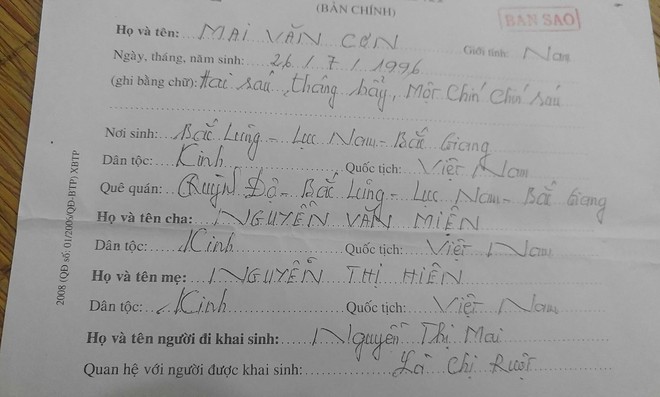 (BẢN CHÍNH)
BAN SAO
Họ và tên: MAI VĂN CƠN Giới tính: Nam
Ngày, tháng, năm sinh: 26 / 7 / 1996
(ghi bằng chữ): Hai sáu, tháng bảy, Một Chín Chín sáu
Nơi sinh: Bắc Lũng - Lục Nam - Bắc Giang
Dân tộc: Kinh Quốc tịch: Việt Nam
Quê quán: Quỳnh Độ - Bắc Lũng - Lục Nam - Bắc Giang
Họ và tên cha: NGUYỄN VĂN MIỆN
Dân tộc: Kinh Quốc tịch: Việt Nam
Họ và tên mẹ: NGUYỄN THỊ HIÊN
Dân tộc: Kinh Quốc tịch: Việt Nam
Họ và tên người đi khai sinh: Nguyễn Thị Mai
Quan hệ với người được khai sinh: Là Chị Ruột
2008 (QĐ số: 01/2006/QĐ-BTP) XBTP